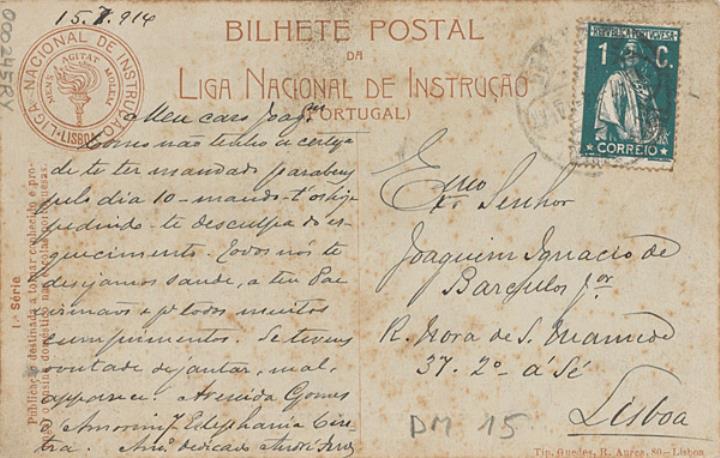 15.7.914
00245RY
BILHETE POSTAL
DA
LIGA NACIONAL DE INSTRUCÇÃO
(PORTUGAL)
LIGA NACIONAL DE INSTRUCÇÃO
LISBOA
MENS AGITAT MOLEM
REPUBLICA PORTUGUESA
1 C.
CORREIO
Meu caro Joaqm
Como não tenho a certeza
de te ter mandado parabens
pelo dia 10 - mando-t'os hoje
pedindo-te desculpa do es-
quecimento. Todos nós te
desejamos saude, a teu Pae
irmãos e pa todos muitos
cumprimentos. Se tiveres
vontade de jantar, mal,
apparece. Avenida Gomes
d'Amorim, Estephania Cin-
tra. Amo dedicado André
Exmo Senhor
Joaquim Ignacio de
Barcellos Jor
R. Nora de S. Mamede
37. 2º á Sé
Lisboa
DM 15
1.ª Série
Publicação destinada a tornar conhecido e pro-
o ensino doméstico nas escolas portuguesas.
Tip. Guedes, R. Aurea, 80—Lisboa